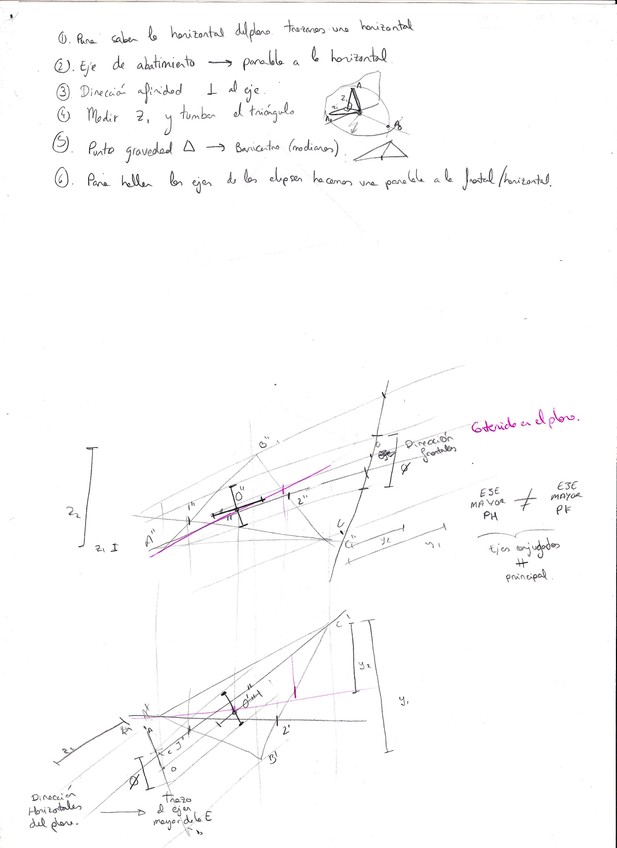 ①. Para saber la horizontal del plano. trazamos una horizontal
②. Eje de abatimiento → paralela a la horizontal.
③ Dirección afinidad ⊥ al eje.
④ Medir Z1 y tumbar el triángulo
A
Z1
⑤. Punto gravedad △ → Baricentro (medianas).
⑥. Para hallar los ejes de las elipses hacemos una paralela a la frontal/horizontal.
Contenido en el plano.
B''
Dirección
frontales
φ
O''
1''
2''
Z2
Z1
A''
C''
y2
y1
ESE
MAYOR
PH
≠
EJE
MAYOR
PF
Ejes conjugados
principal.
C'
y2
y1
A'
O'
1'
2'
B'
Z2
φ
Dirección
Horizontales
del plano.
→
Trazo
el eje
mayor de la E